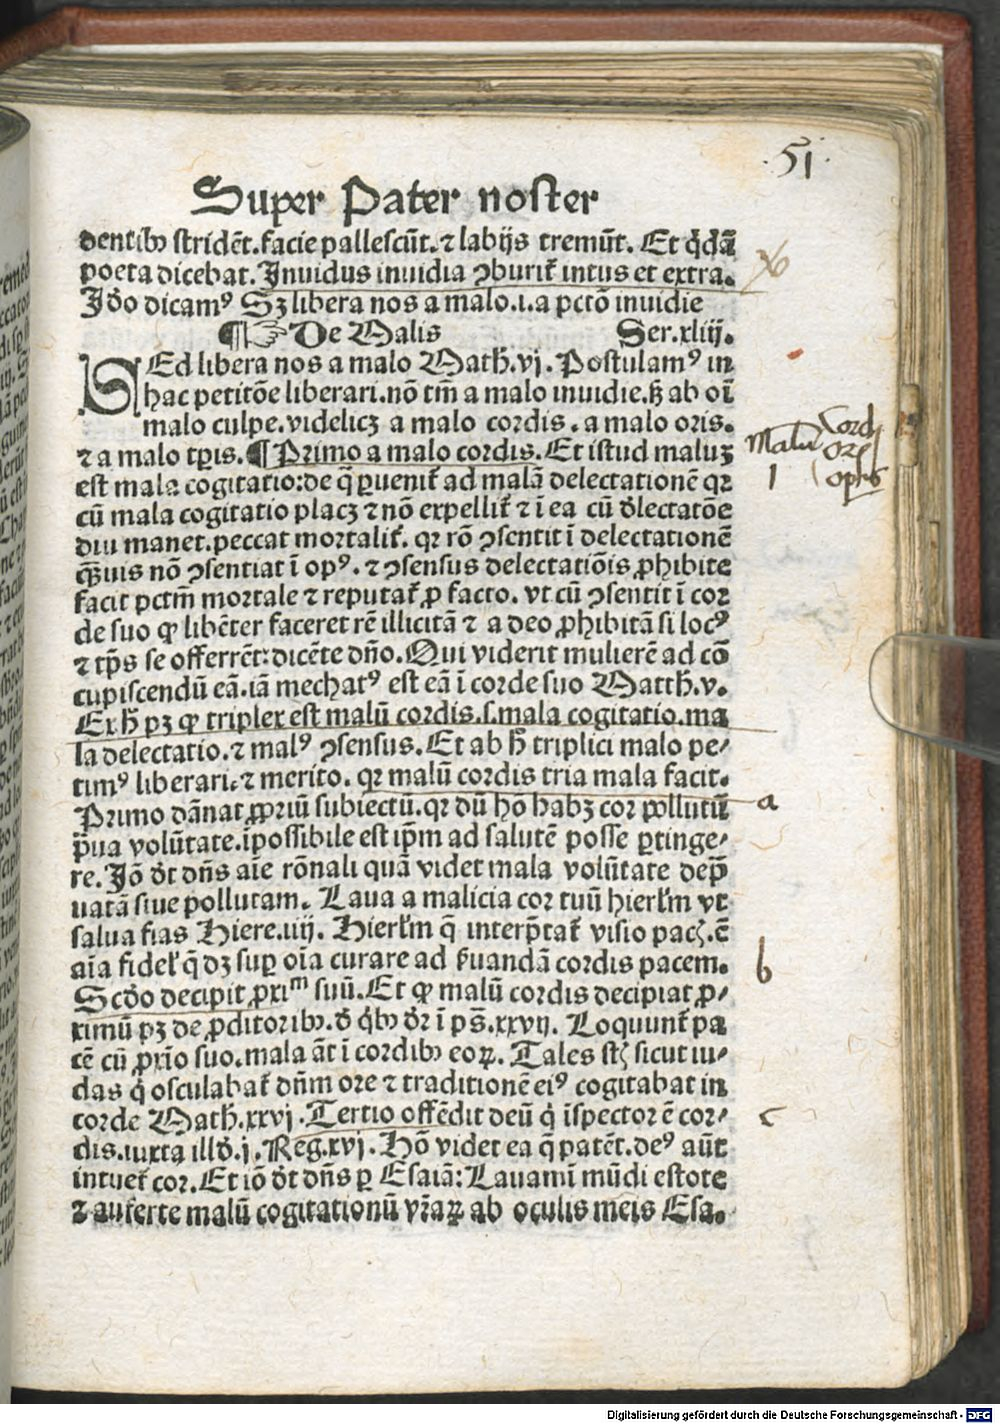 .51.
Super Pater noster
dentibꝰ stridēt. facie pallescūt. ⁊ labijs tremūt. Et q̇dā
poeta dicebat. Inuidus inuidia ꝯburit̃ intus et extra.
Iḋo dicamꝰ Sꝫ libera nos a malo .i. a pctō inuidie
¶ ☞ De Malis Ser. xliij.
SEd libera nos a malo Math̃. vj. Postulamꝰ in
hac petitōe liberari. nō tm̄ a malo inuidie. sꝫ ab oī
malo culpe. videlicꝫ a malo cordis. a malo oris.
⁊ a malo tꝑis. ¶ Primo a malo cordis. Et istud maluꝫ
est mala cogitatio: de q̄ ꝑuenit̃ ad malā delectationē qꝛ
cū mala cogitatio placꝫ ⁊ nō expellit̃ ⁊ ī ea cū ḋlectatōe
diu manet. peccat mortalit̃. qꝛ rō ꝯsentit ī delectationē
q̄uis nō ꝯsentiat ī opꝰ. ⁊ ꝯsensus delectatiōis ꝓhibite
facit pctm̄ mortale ⁊ reputat̃ ꝓ facto. vt cū ꝯsentit ī cor
de suo ꝙ libēter faceret rē illicitā ⁊ a deo ꝓhibitā si locꝰ
⁊ tp̄s se offerrēt: dicēte dn̄o. Qui viderit mulierē ad cō
cupiscendū eā. iā mechatꝰ est eā ī corde suo Matth̃. v.
Ex h̄ pꝫ ꝙ triplex est malū cordis. s. mala cogitatio. ma
la delectatio. ⁊ malꝰ ꝯsensus. Et ab h̄ triplici malo pe⸗
timꝰ liberari. ⁊ merito. qꝛ malū cordis tria mala facit.
Primo dānat ꝓpriū subiectū. qꝛ dū hō habꝫ cor pollutū
p̄ua volūtate. īpossibile est ip̄m ad salutē posse ꝑtinge⸗
re. Iō ḋt dn̄s aīe rōnali quā videt mala volūtate dep̄
uatā siue pollutam. Laua a malicia cor tuū hierl̃m vt
salua fias Hiere. iiij. Hierl̃m q̄ interp̄tat̃ visio pacꝭ. ē
aīa fidel̃ q̄ dꝫ suꝑ oīa curare ad s̃uandā cordis pacem.
Scḋo decipit ꝓximū suū. Et ꝙ malū cordis decipiat ꝓ⸗
ximū pꝫ de ꝓditoribꝰ. ḋ q̇bꝰ ḋr ī ps̄. xxvij. Loquunt̃ pa
cē cū ꝓxīo suo. mala āt ī cordibꝰ eoꝝ. Tales st̄ sicut iu⸗
das q̇ osculabat̃ dn̄m ore ⁊ traditionē eiꝰ cogitabat in
corde Math̃. xxvj. Tertio offēdit deū q̇ īspector ē cor⸗
dis. iuxta illḋ. j. Reg. xvj. Hō videt ea q̄ patēt. deꝰ aūt
intuet̃ cor. Et iō ḋt dn̄s ꝑ Esaiā: Lauamī mūdi estote
⁊ auferte malū cogitationū vr̄aꝝ ab oculis meis Esa.
Malū cord
or
opis
1
a
b
c
Digitalisierung gefördert durch die Deutsche Forschungsgemeinschaft - DFG